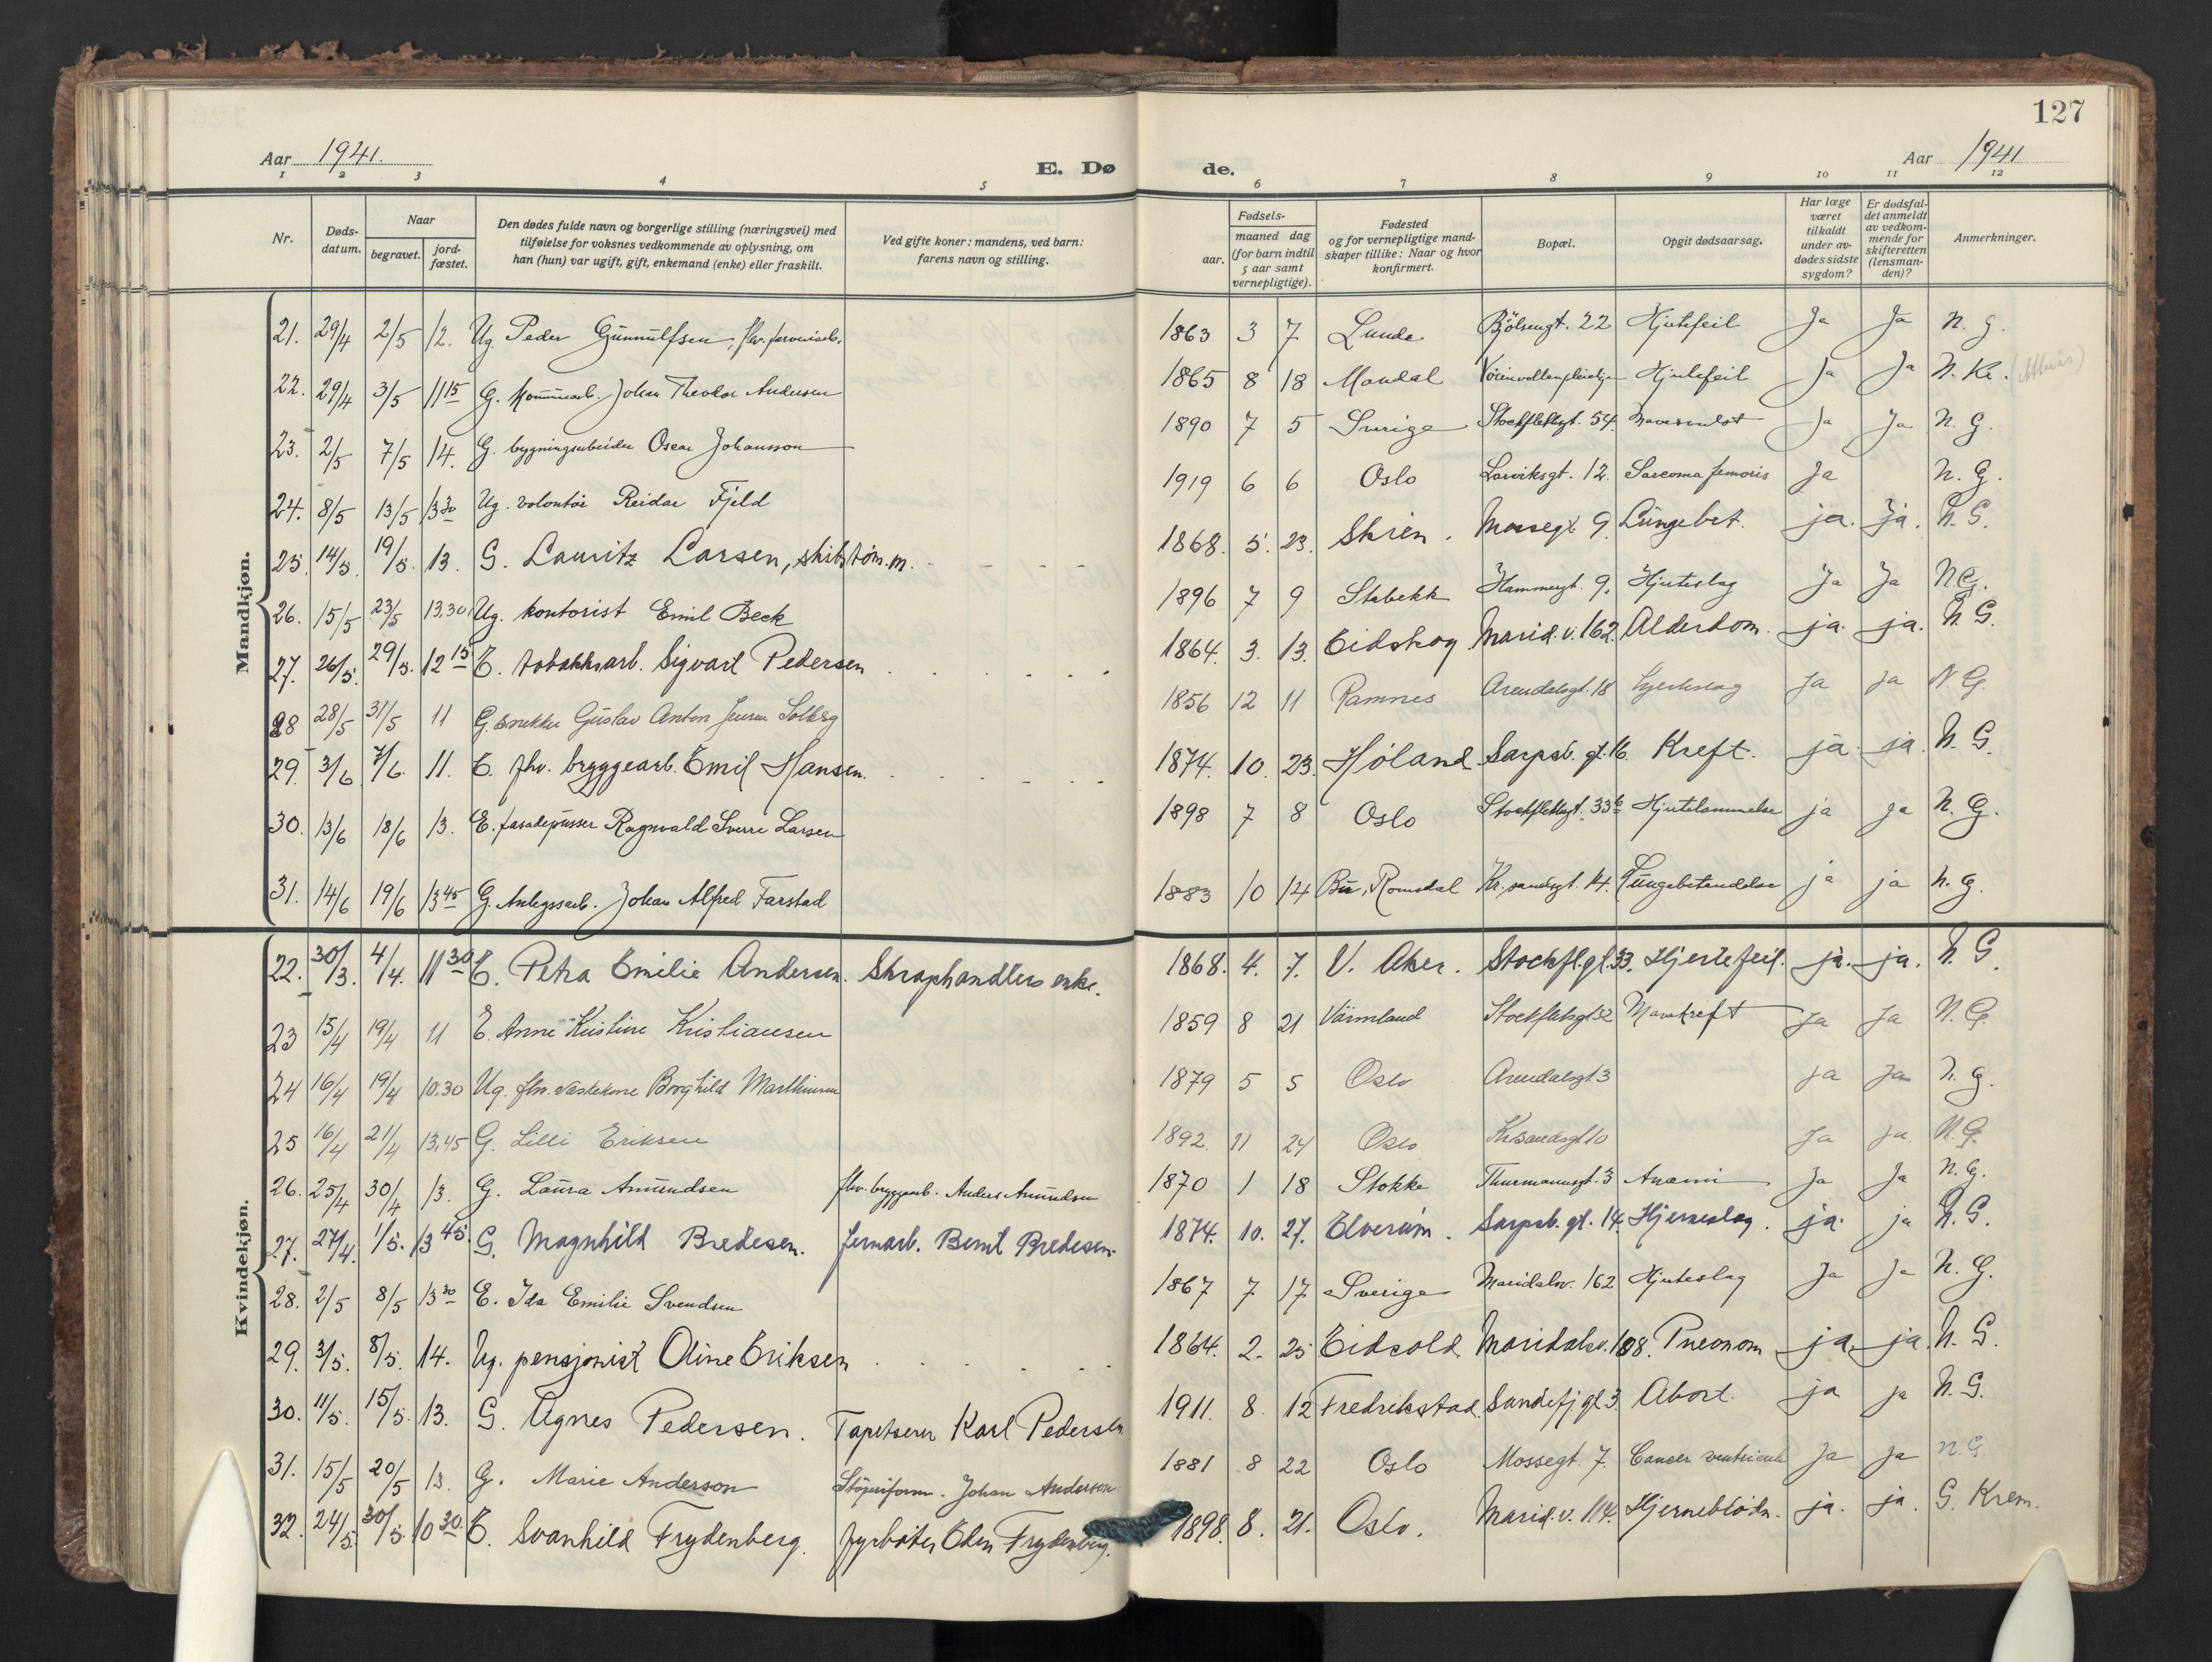 127
Aar 1941. E. Dø de. Aar 1941
1 2 3 4 5 6 7 8 9 10 11 12
Nr.
Døds-
datum.
Naar
begravet.
jord-
fæstet.
Den dødes fulde navn og borgerlige stilling (næringsvei) med
tilføielse for voksnes vedkommende av oplysning, om
han (hun) var ugift, gift, enkemand (enke) eller fraskilt.
Ved gifte koner: mandens, ved barn:
farens navn og stilling.
Fødsels-
aar.
maaned dag
(for barn indtil
5 aar samt
vernepligtige).
Fødested
og for vernepligtige mand-
skaper tillike: Naar og hvor
konfirmert.
Bopæl.
Opgit dødsaarsag.
Har læge
været
tilkaldt
under av-
dødes sidste
sygdom?
Er dødsfal-
det anmeldt
av vedkom-
mende for
skifteretten
(lensman-
den)?
Anmerkninger.
Mandkjøn.
21. 29/4 2/5 12. Ug. Peder Gunnulfsen, flv. farveriarb. 1863 3 7 Lunde Bjölsengt. 22 Hjertefeil Ja Ja N. G.
22. 29/4 3/5 11 15 G. Kommunearb. Johan Theodor Andersen 1865 8 18 Mandal Hjertefeil Ja Ja N. Kr.
23. 2/5 7/5 14. G. bygningsarbeider Oscar Johansson 1890 7 5 Sverige Stockflethsgt. 54. Mavesvulst Ja Ja N. G.
24. 8/5 13/5 13 30 Ug. volontør Reidar Fjeld 1919 6 6 Oslo Larviksgt. 12. Sarcoma femoris Ja N. G.
25. 14/5. 19/5. 13. G. Lauritz Larsen, skibstøm.m. 1868. 5. 23. Skien. Mossegt 9. Lungebet. ja. ja. N. G.
26. 15/5 23/5 13.30 Ug. kontorist Emil Beck 1896 7 9 Stabekk Hammergt. 9. Hjerteslag Ja Ja N G.
27. 26/5. 29/5. 12 15 E. tobakksarb. Sigvart Pedersen 1864. 3. 13. Eidskog Marid. v. 162. Alderdom. ja. ja. N. G.
28 28/5 31/5 11 G. Snekker Gustav Anton Jensen Solberg 1856 12 11 Ramnes Arendalsgt. 18 Hjerteslag Ja Ja N. G.
29. 3/6 7/6. 11. E. fhv. bryggearb. Emil Hansen. 1874. 10. 23. Høland Sarpsb. gt. 16. Kreft. ja. ja. N. G.
30. 13/6 18/6 13. E. fasadepusser Ragnvald Sverre Larsen 1898 7 8 Oslo Stockflethsgt. 33 b Hjertelammelse ja ja N. G.
31. 14/6 19/6 13 45 G. Anlegsarb. Johan Alfred Farstad 1883 10 14 Bu, Romsdal Kr.sandsgt. 14. Lungebetendelse ja ja N. G.
Kvindekjøn.
22. 30/3. 4/4. 11 30 E. Petra Emilie Andersen. Skraphandlers enke. 1868. 4. 7. V. Aker. Stockfl.gt. 33. Hjertefeil. ja. ja. N. G.
23 15/4 19/4 11 E. Anne Kristine Kristiansen 1859 8 21 Värmland Stockflethsgt 32 Mavekreft Ja Ja N. G.
24 16/4 19/4 10.30 Ug. fhv. vaskekone Borghild Marthinsen 1879 5 5 Oslo Arendalsgt 3 ja Ja N. G.
25 16/4 21/4 13,45 G. Lilli Eriksen 1892 11 24 Oslo Krsandsgt 10 Ja ja N. G.
26. 25/4 30/4 13. G. Laura Amundsen fhv. bryggearb. Anders Amundsen 1870 1 18 Stokke Thurmannsgt. 3 Anæmi Ja Ja N. G.
27. 27/4. 1/5. 13 45. G. Magnhild Bredesen. Jernarb. Bernt Bredesen. 1874. 10. 27. Elverum. Sarpsb. gt. 14. Hjerneslag. ja. ja N. G.
28. 2/5 8/5 13 30 E. Ida Emilie Svendsen 1867 7 17 Sverige Maridalsv. 162 Hjerteslag Ja Ja N. G.
29. 3/5. 8/5. 14. Ug. pensjonist Oline Eriksen 1864. 2. 25 Eidsvold Maridalsv. 108. Pneumon ja. ja. N. G.
30. 11/5. 15/5. 13. G. Agnes Pedersen. Tapetserer Karl Pedersen 1911. 8. 12 Fredrikstad. Sandefj gt 3. Abort. ja ja N. G.
31. 15/5 20/5 13. G. Marie Anderson Støperiform. Johan Anderson. 1881 8 22 Oslo Mossegt. 7. Cancer ventriculi Ja ja N. G.
32. 24/5. 30/5. 10 30. E. Svanhild Frydenberg. fyrbøter Eden Frydenberg. 1898. 8. 21. Oslo. Marid. v. 114. Hjerneblødn. ja. ja. G. Krem.